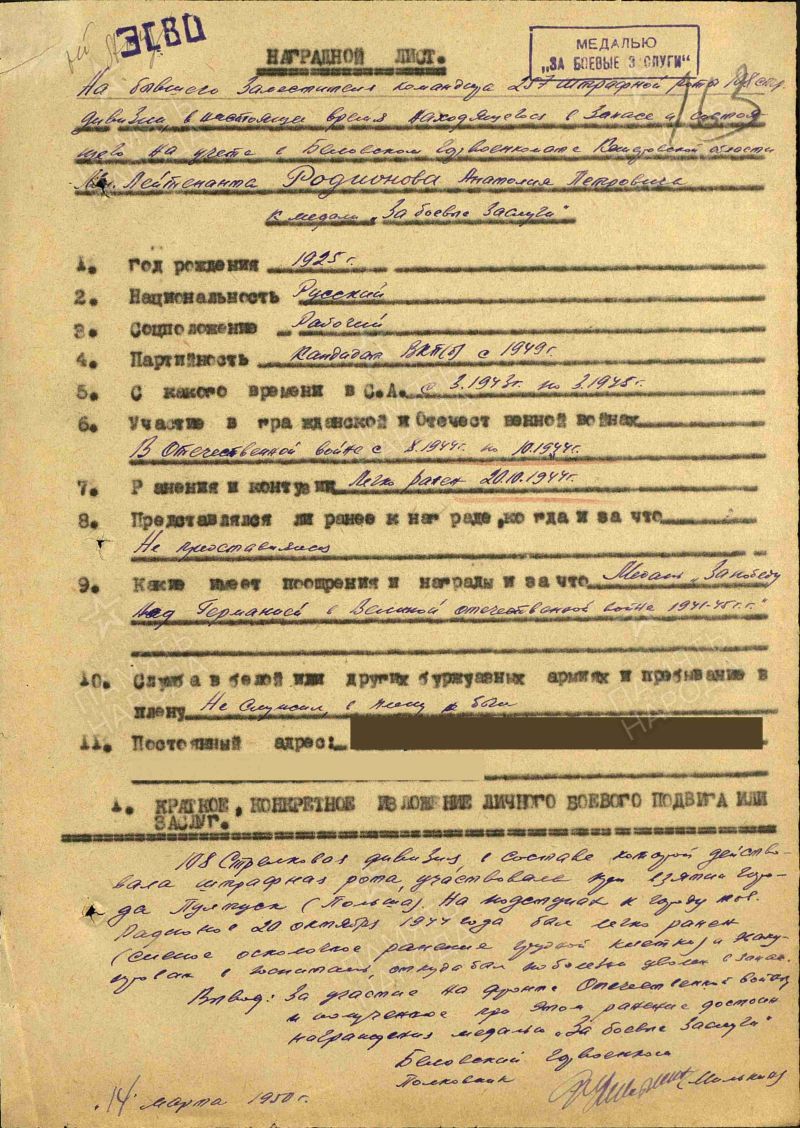 НАГРАДНОЙ ЛИСТ.
МЕДАЛЬЮ
"ЗА БОЕВЫЕ ЗАСЛУГИ"
163
На бывшего Заместителя командира 257 штрафной роты 108 стр.
дивизии, в настоящее время находящегося в Запасе и состоя-
щего на учете в Беловском горвоенкомате Кемеровской области
Мл. Лейтенанта Родионова Анатолия Петровича
к медали "За боевые Заслуги"
1. Год рождения 1925 г.
2. Национальность Русский
3. Соцположение Рабочий
4. Партийность Кандидат ВКП(б) с 1949г.
5. С какого времени в С.А. с 3.1943г. по 3.1945г.
6. Участие в гражданской и Отечественной войнах
В Отечественной войне с 8.1944г. по 10.1944г.
7. Ранения и контузии Легко ранен 20.10.1944г.
8. Представлялся ли ранее к награде, когда и за что
Не представлялся
9. Какие имеет поощрения и награды и за что Медаль "За победу
над Германией в Великой отечественной войне 1941-45г.г."
10. Служба в белой или других буржуазных армиях и пребывание в
плену Не служил, в плену не был
11. Постоянный адрес:
1. КРАТКОЕ, КОНКРЕТНОЕ ИЗЛОЖЕНИЕ ЛИЧНОГО БОЕВОГО ПОДВИГА ИЛИ
ЗАСЛУГ.
108 Стрелковая дивизия, в составе которой действо-
вала штрафная рота, участвовала при взятии горо-
да Пултуск (Польша). На подступах к городу тов.
Радионов 20 октября 1944 года был легко ранен
(слепое осколковое ранение грудной клетки) и эваку-
ирован в госпиталь, откуда был по болезни уволен в запас.
Вывод: За участие на фронте Отечественной войны
и полученное при этом ранение достоин
награждения медалью "За боевые Заслуги"
Беловский Горвоенком
Полковник
"14" марта 1950г.